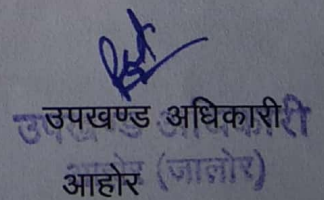 उपखण्ड अधिकारी
उपखण्ड अधिकारी
आहोर
आहोर (जालोर)